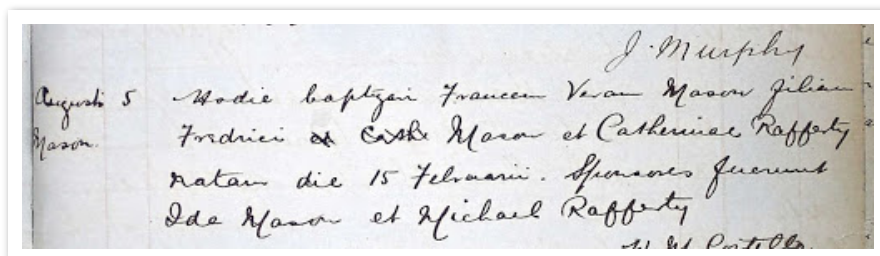 J. Murphy
Augusti 5 Hodie baptizavi Francem Veram Mason filiam
Mason. Fredrici et Cath Mason et Catherinae Rafferty
natam die 15 Februarii. Sponsores fuerunt
Ide Mason et Michael Rafferty
W. M. Costello.